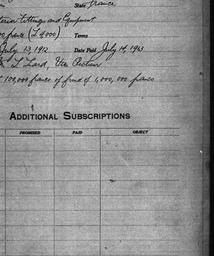 State France
Fittings and Equipment
francs (£4,000) Terms
July 13, 1912 Date Paid July 14, 1913
L Lard, Vice
100,000 francs of fund of 1,000,000 francs
ADDITIONAL SUBSCRIPTIONS
PROMISED PAID OBJECT